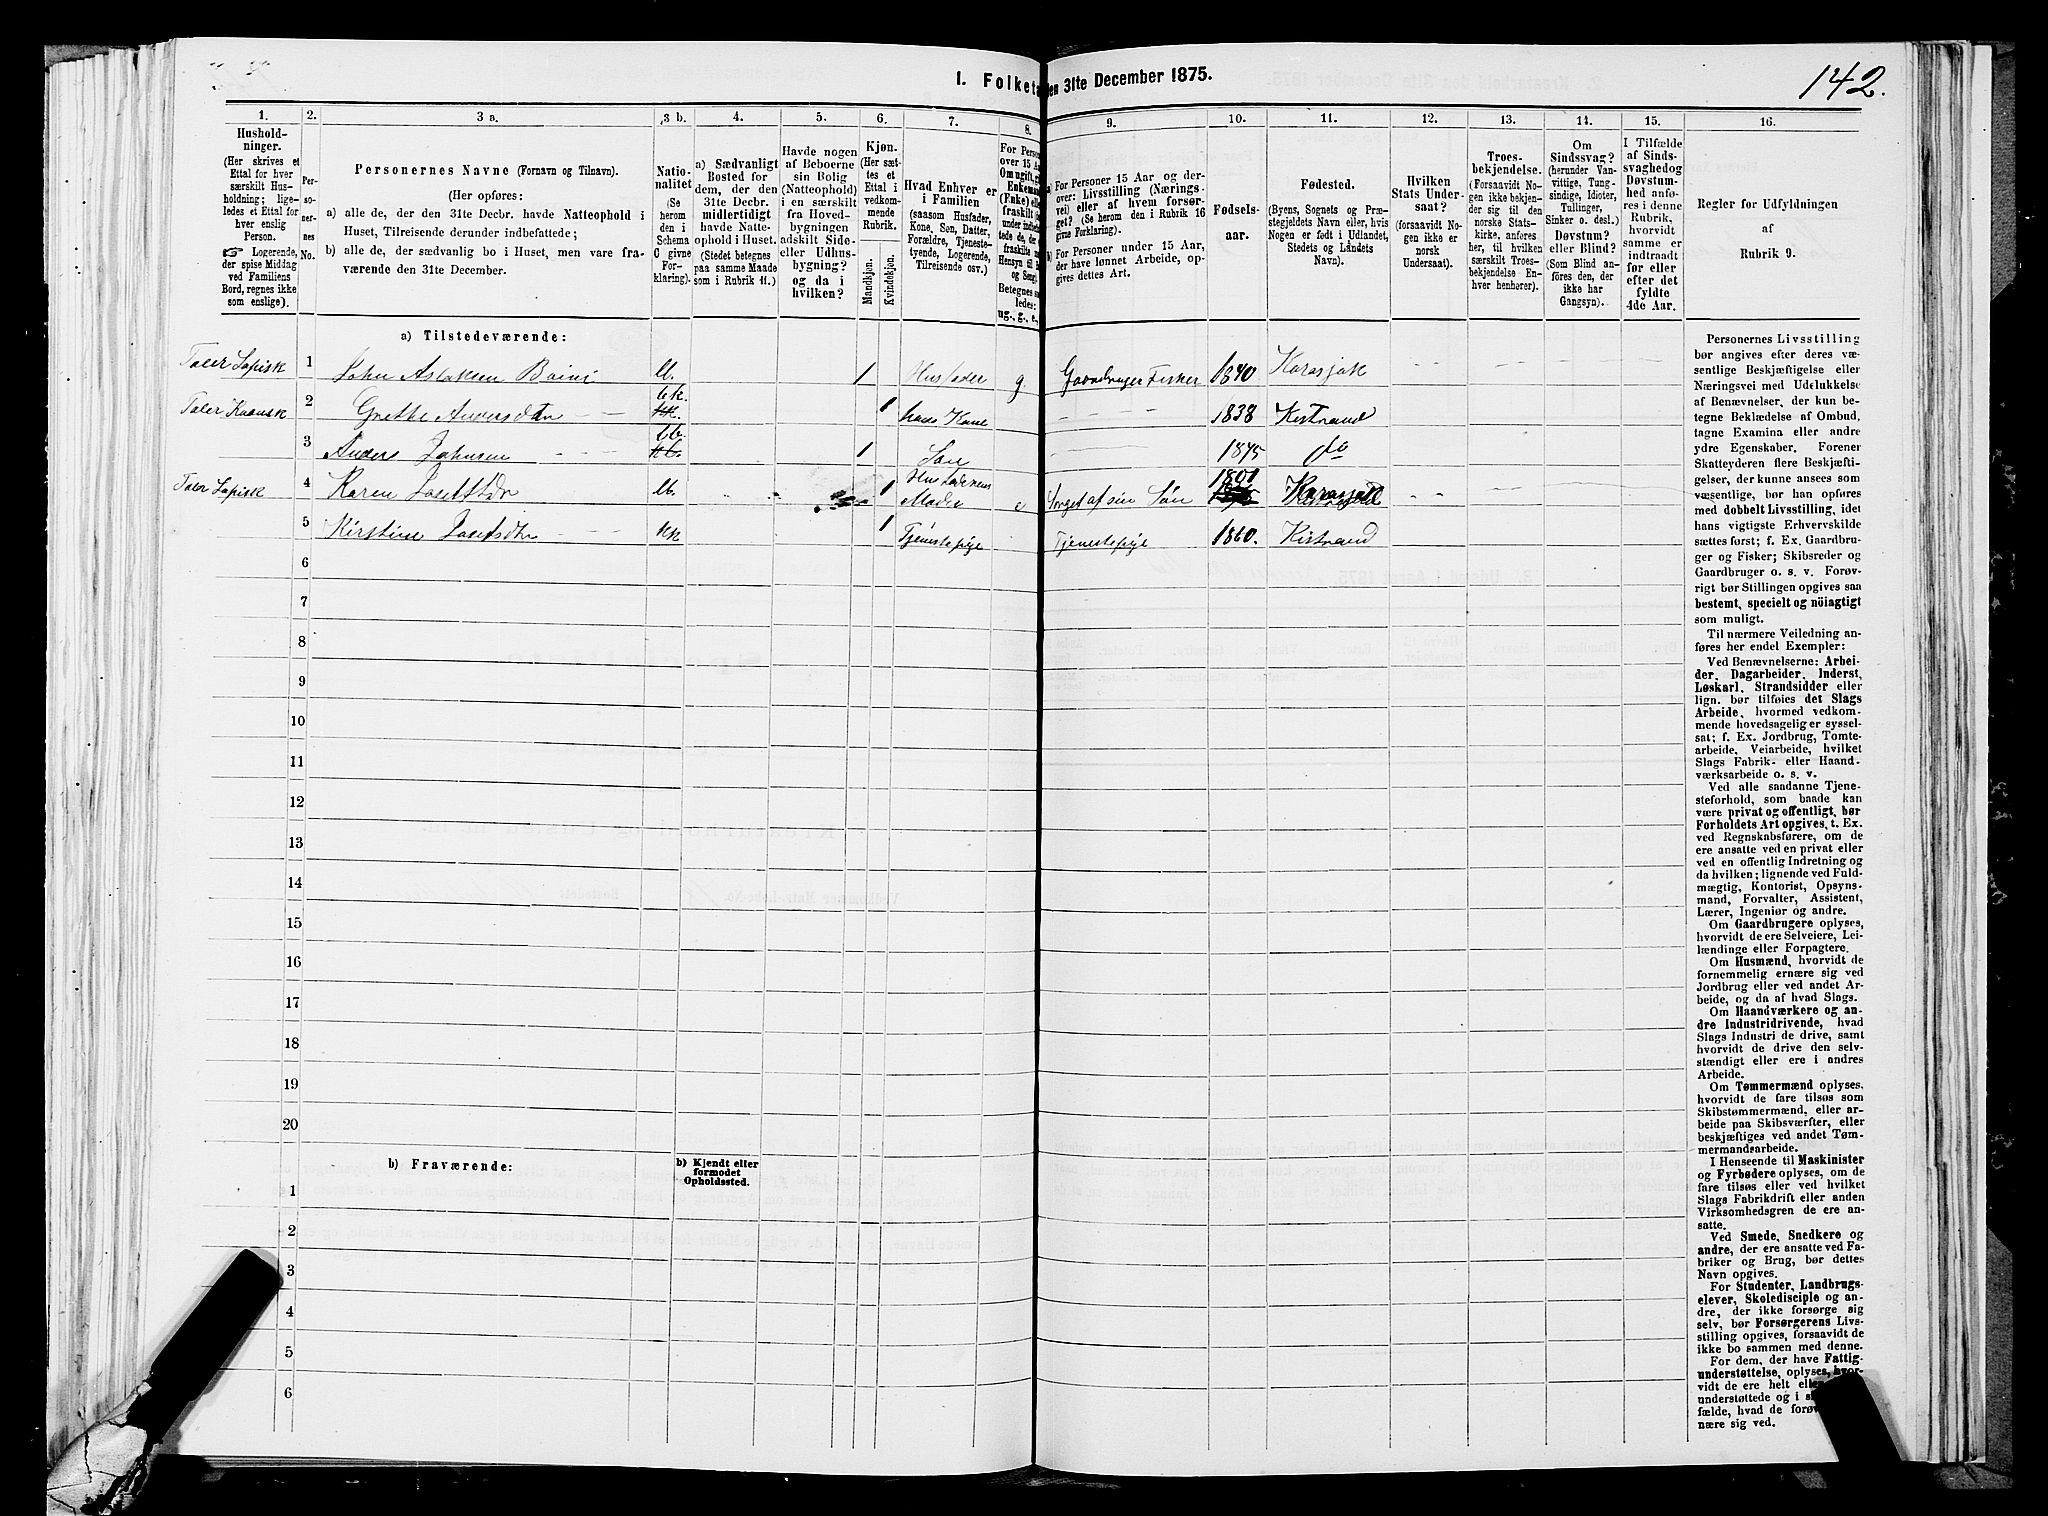 I. Folketa en 31te December 1875.
142.
1.
2.
3 a.
3 b.
4.
5.
6.
7.
8.
9.
10.
11.
12.
13.
14.
15.
16.
Hushold-
ninger.
(Her skrives et
Ettal for hver
særskilt Hus-
holdning; lige-
ledes et Ettal for
hver enslig
Person.
☞ Logerende,
der spise Middag
ved Familiens
Bord, regnes ikke
som enslige).
Per-
so-
ner-
nes
No.
Personernes Navne (Fornavn og Tilnavn).
(Her opføres:
a) alle de, der den 31te Decbr. havde Natteophold i
Huset, Tilreisende derunder indbefattede;
b) alle de, der sædvanlig bo i Huset, men vare fra-
værende den 31te December.
Natio-
nalitet
(Se
herom
den i
Schema
C givne
For-
klaring).
a) Sædvanligt
Bosted for
dem, der den
31te Decbr.
midlertidigt
havde Natte-
ophold i Huset.
(Stedet betegnes
paa samme Maade
som i Rubrik 11.)
Havde nogen
af Beboerne
sin Bolig
(Natteophold)
i en særskilt
fra Hoved-
bygningen
adskilt Side-
eller Udhus-
bygning?
og da i
hvilken?
Kjøn.
(Her sæt-
tes et
Ettal i
vedkom-
mende
Rubrik.
Mandkjøn.
Kvindekjøn.
Hvad Enhver er
i Familien
(saasom Husfader,
Kone, Søn, Datter,
Forældre, Tjeneste-
tyende, Logerende,
Tilreisende osv.)
For Person
over 15 Aar
Om ugift, gi
Enkema
(Enke) elle
fraskilt
Betegnes
ledes:
ug., g., e.,
a) For Personer 15 Aar og der-
over: Livsstilling (Nærings-
vei) eller af hvem forsør-
get? (Se herom i Rubrik 16
givne Forklaring).
b) For Personer under 15 Aar,
der have lønnet Arbeide, op-
gives dettes Art.
Fødsels-
aar.
Fødested.
(Byens, Sognets og Præ-
stegjeldets Navn eller, hvis
Nogen er født i Udlandet,
Stedets og Landets
Navn).
Hvilken
Stats Under-
saat?
(forsaavidt No-
gen ikke er
norsk
Undersaat).
Troes-
bekjendelse.
(Forsaavidt No-
gen ikke bekjen-
der sig til den
norske Stats-
kirke, anføres
her, til hvilken
særskilt Troes-
bekjendelse En-
hver henhører).
Om
Sindssvag?
(herunder Van-
vittige, Tung-
sindige, Idioter,
Tullinger,
Sinker o. desl.)
Døvstum?
eller Blind?
(Som Blind an-
føres den, der
ikke har
Gangsyn).
I Tilfælde
af Sinds-
svaghed og
Døvstum-
hed anfø-
res i denne
Rubrik,
hvorvidt
samme er
indtraadt
før eller
efter det
fyldte
4de Aar.
Regler for Udfyldningen
af
Rubrik 9.
a) Tilstedeværende:
Taler Lapisk 1 John Aslaksen Boini lb. 1 Husfader g Gaardbruger Fisker 1840 Karasjok
Taler Kvænsk 2 Grethe Andersdtr bk. kk. 1 hans Kone 1838 Kistrand
3 Anders Johnsen bb. kb. 1 Søn 1875 do
Taler Lapisk 4 Karen Josefsdtr lb. 1 Husfaderens Moder e Sørget af sin Søn 1801 Karasjok
5 Kirstine Josefsdtr kk 1 Tjenestepige Tjenestepige 1860. Kistrand
6
7
8
9
10
11
12
13
14
15
16
17
18
19
20
b) Fraværende:
b) Kjendt eller
formodet
Opholdssted.
1
2
3
4
5
6
Personernes Livsstilling
bør angives efter deres væ-
sentlige Beskjæftigelse eller
Næringsvei med Udelukkelse
af Benævnelser, der kun be-
tegne Beklædelse af Ombud,
tagne Examina eller andre
ydre Egenskaber. Forener
Skatteyderen flere Beskjæfti-
gelser, der kunne ansees som
væsentlige, bør han opføres
med dobbelt Livsstilling, idet
hans vigtigste Erhvervskilde
sættes først; f. Ex. Gaardbru-
ger og Fisker; Skibsreder og
Gaardbruger o. s. v. Forøv-
rigt bør Stillingen opgives saa
bestemt, specielt og nöiagtigt
som muligt.
Til nærmere Veiledning an-
føres her endel Exempler:
Ved Benævnelserne: Arbei-
der, Dagarbeider, Inderst,
Løskarl, Strandsidder eller
lign. bør tilføies det Slags
Arbeide, hvormed vedkom-
mende hovedsagelig er syssel-
sat; f. Ex. Jordbrug, Tomte-
arbeide, Veiarbeide, hvilket
Slags Fabrik- eller Haand-
værksarbeide o. s. v.
Ved alle saadanne Tjene-
steforhold, som baade kan
være privat og offentligt, bør
Forholdets Art opgives, t. Ex.
ved Regnskabsførere, om de
ere ansatte ved en privat eller
ved en offentlig Indretning og
da hvilken; lignende ved Fuld-
mægtig, Kontorist, Opsyns-
mand, Forvalter, Assistent,
Lærer, Ingeniør og andre.
Om Gaardbrugere oplyses,
hvorvidt de ere Selveiere, Lei-
lændinge eller Forpagtere.
Om Husmænd, hvorvidt de
fornemmelig ernære sig ved
Jordbrug eller ved andet Ar-
beide, og da af hvad Slags.
Om Haandværkere og an-
dre Industridrivende, hvad
Slags Industri de drive, samt
hvorvidt de drive den selv-
stændigt eller ere i andres
Arbeide.
Om Tømmermænd oplyses,
hvorvidt de fare tilsøs som
Skibstømmermænd, eller ar-
beide paa Skibsværfter, eller
beskjæftiges ved andet Tøm-
mermandsarbeide.
I Henseende til Maskinister
og Fyrbødere oplyses, om de
fare tilsøs eller ved hvilket
Slags Fabrikdrift eller anden
Virksomhedsgren de ere an-
satte.
Ved Smede, Snedkere og
andre, der ere ansatte ved Fa-
briker og Brug, bør dettes
Navn opgives.
For Studenter, Landbrugs-
elever, Skoledisciple og an-
dre, der ikke forsørge sig
selv, bør Forsørgerens Livs-
stilling opgives, forsaavidt de
ikke bo sammen med denne.
For dem, der have Fattig-
understøttelse, oplyses, hvor-
vidt de ere helt elle
understøttede og i s
fælde, hvad de forøv
nære sig ved.